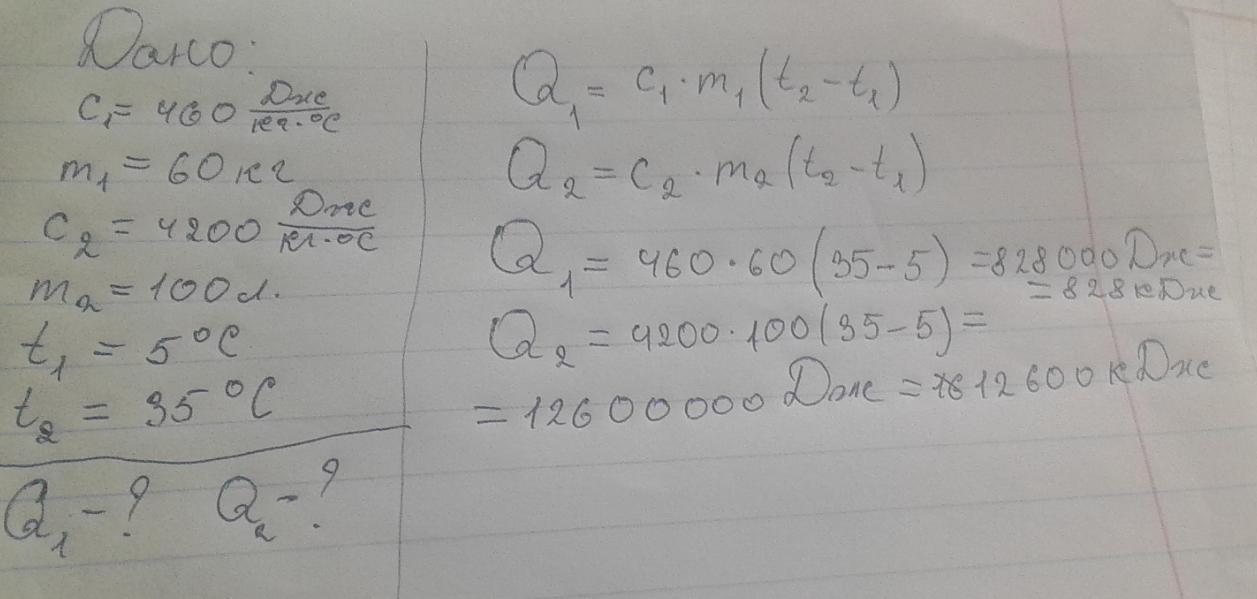 Дано:
c₁ = 460 Дж/кг·°C
m₁ = 60 кг
c₂ = 4200 Дж/кг·°C
m₂ = 100 л.
t₁ = 5°C
t₂ = 35°C
Q₁ - ? Q₂ - ?
Q₁ = c₁ · m₁ (t₂ - t₁)
Q₂ = c₂ · m₂ (t₂ - t₁)
Q₁ = 460 · 60 (35 - 5) = 828000 Дж =
= 828 кДж
Q₂ = 4200 · 100 (35 - 5) =
= 12600000 Дж = 12600 кДж